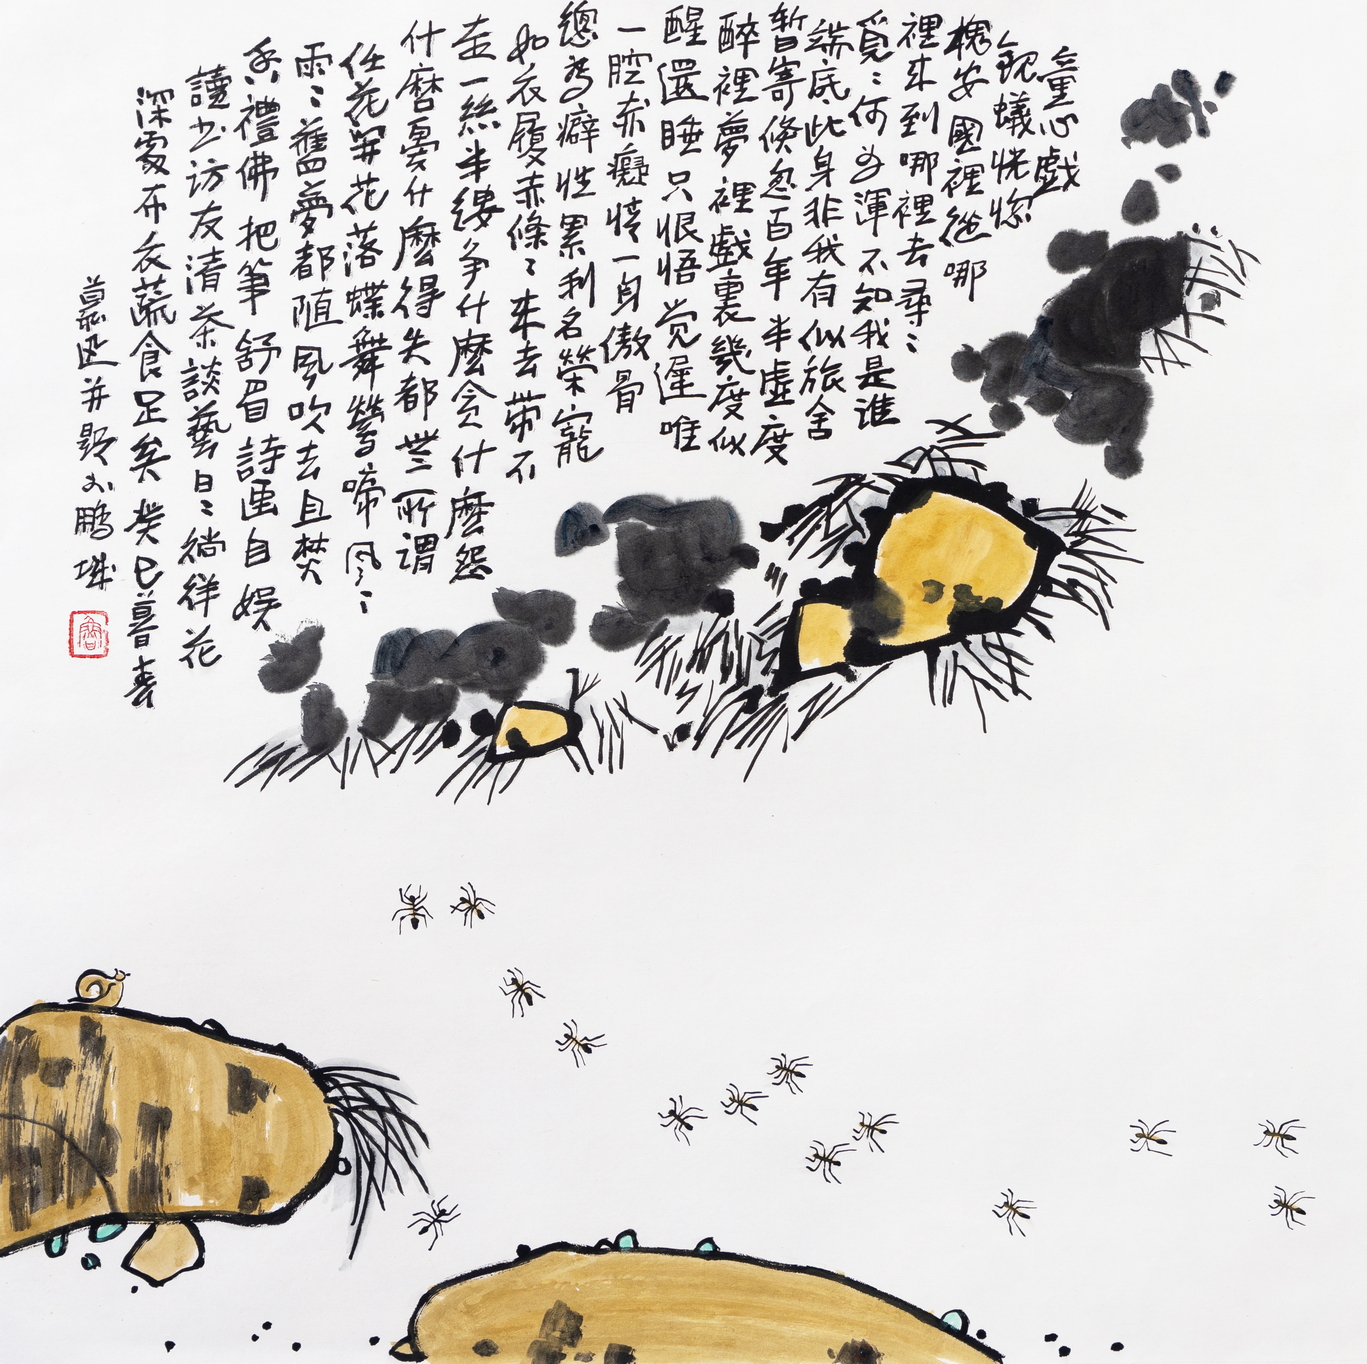 童心戲
觀蟻恍惚
槐安國裡從哪
裡來到哪裡去尋〻
覓〻何為渾不知我是誰
端底此身非我有似旅舍
暫寄倏忽百年半虛度
醉裡夢裡戲裏幾度似
醒還睡只恨悟觉遲唯
一腔赤癡情一身傲骨
總為癖性累利名榮寵
如衣履赤條〻來去帶不
走一絲半縷爭什麼貪什麼怨
什麼憂什麼得失都無所謂
任花開花落蝶舞鶯啼風〻
雨〻舊夢都隨風吹去且焚
香禮佛把筆舒眉詩畫自娱
讀书访友清茶談藝日〻徜徉花
深處布衣蔬食足矣癸巳暮春
并題於鵬城